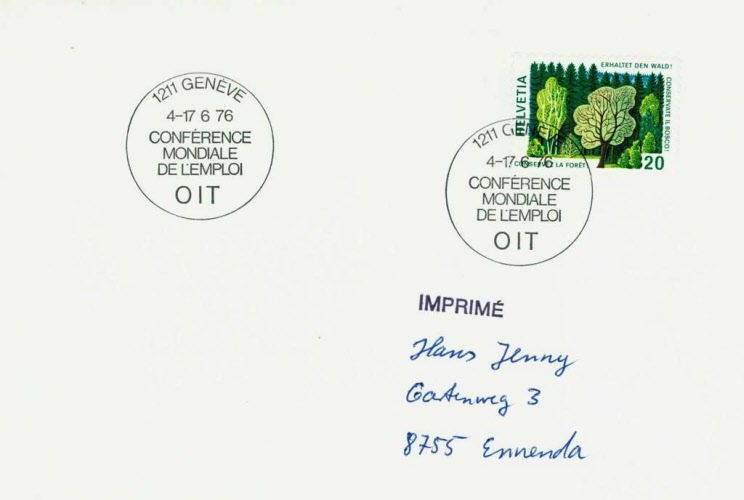 1211 GENÈVE
4-17 6 76
CONFÉRENCE
MONDIALE
DE L'EMPLOI
OIT
ERHALTET DEN WALD!
HELVETIA
CONSERVATE IL BOSCO!
CONSERVEZ LA FORÊT
20
1211 GENÈVE
4-17 6 76
CONFÉRENCE
MONDIALE
DE L'EMPLOI
OIT
IMPRIMÉ
Hans Jenny
Gartenweg 3
8755 Ennenda